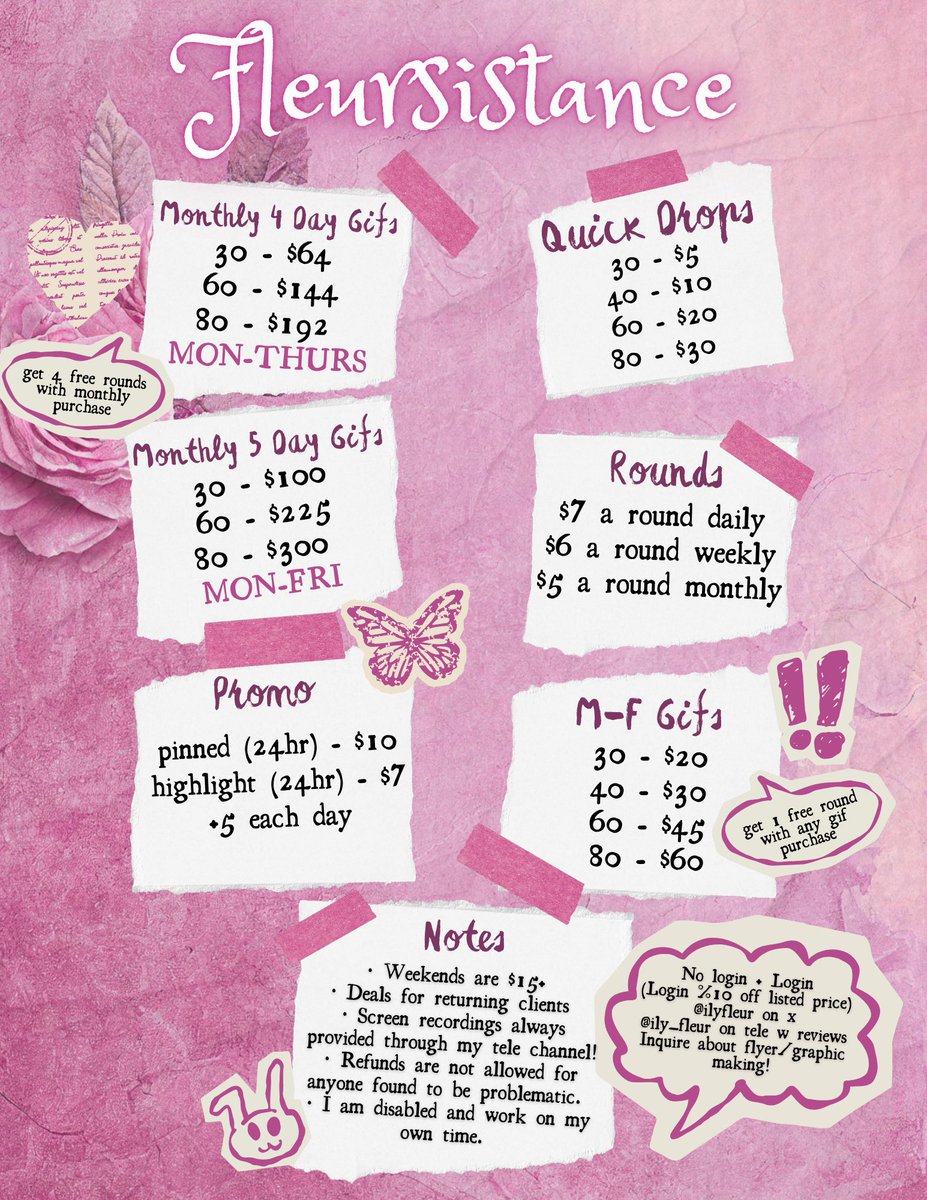 Fleursistance
Monthly 4 Day Gifs
30 - $64
60 - $144
80 - $192
MON-THURS
get 4 free rounds
with monthly
purchase
Monthly 5 Day Gifs
30 - $100
60 - $225
80 - $300
MON-FRI
Promo
pinned (24hr) - $10
highlight (24hr) - $7
+5 each day
Quick Drops
30 - $5
40 - $10
60 - $20
80 - $30
Rounds
$7 a round daily
$6 a round weekly
$5 a round monthly
M-F Gifs
30 - $20
40 - $30
60 - $45
80 - $60
get 1 free round
with any gif
purchase
Notes
· Weekends are $15+
· Deals for returning clients
· Screen recordings always
provided through my tele channel!
· Refunds are not allowed for
anyone found to be problematic.
· I am disabled and work on my
own time.
No login + Login
(Login %10 off listed price)
@ilyfleur on x
@ily_fleur on tele w reviews
Inquire about flyer/graphic
making!